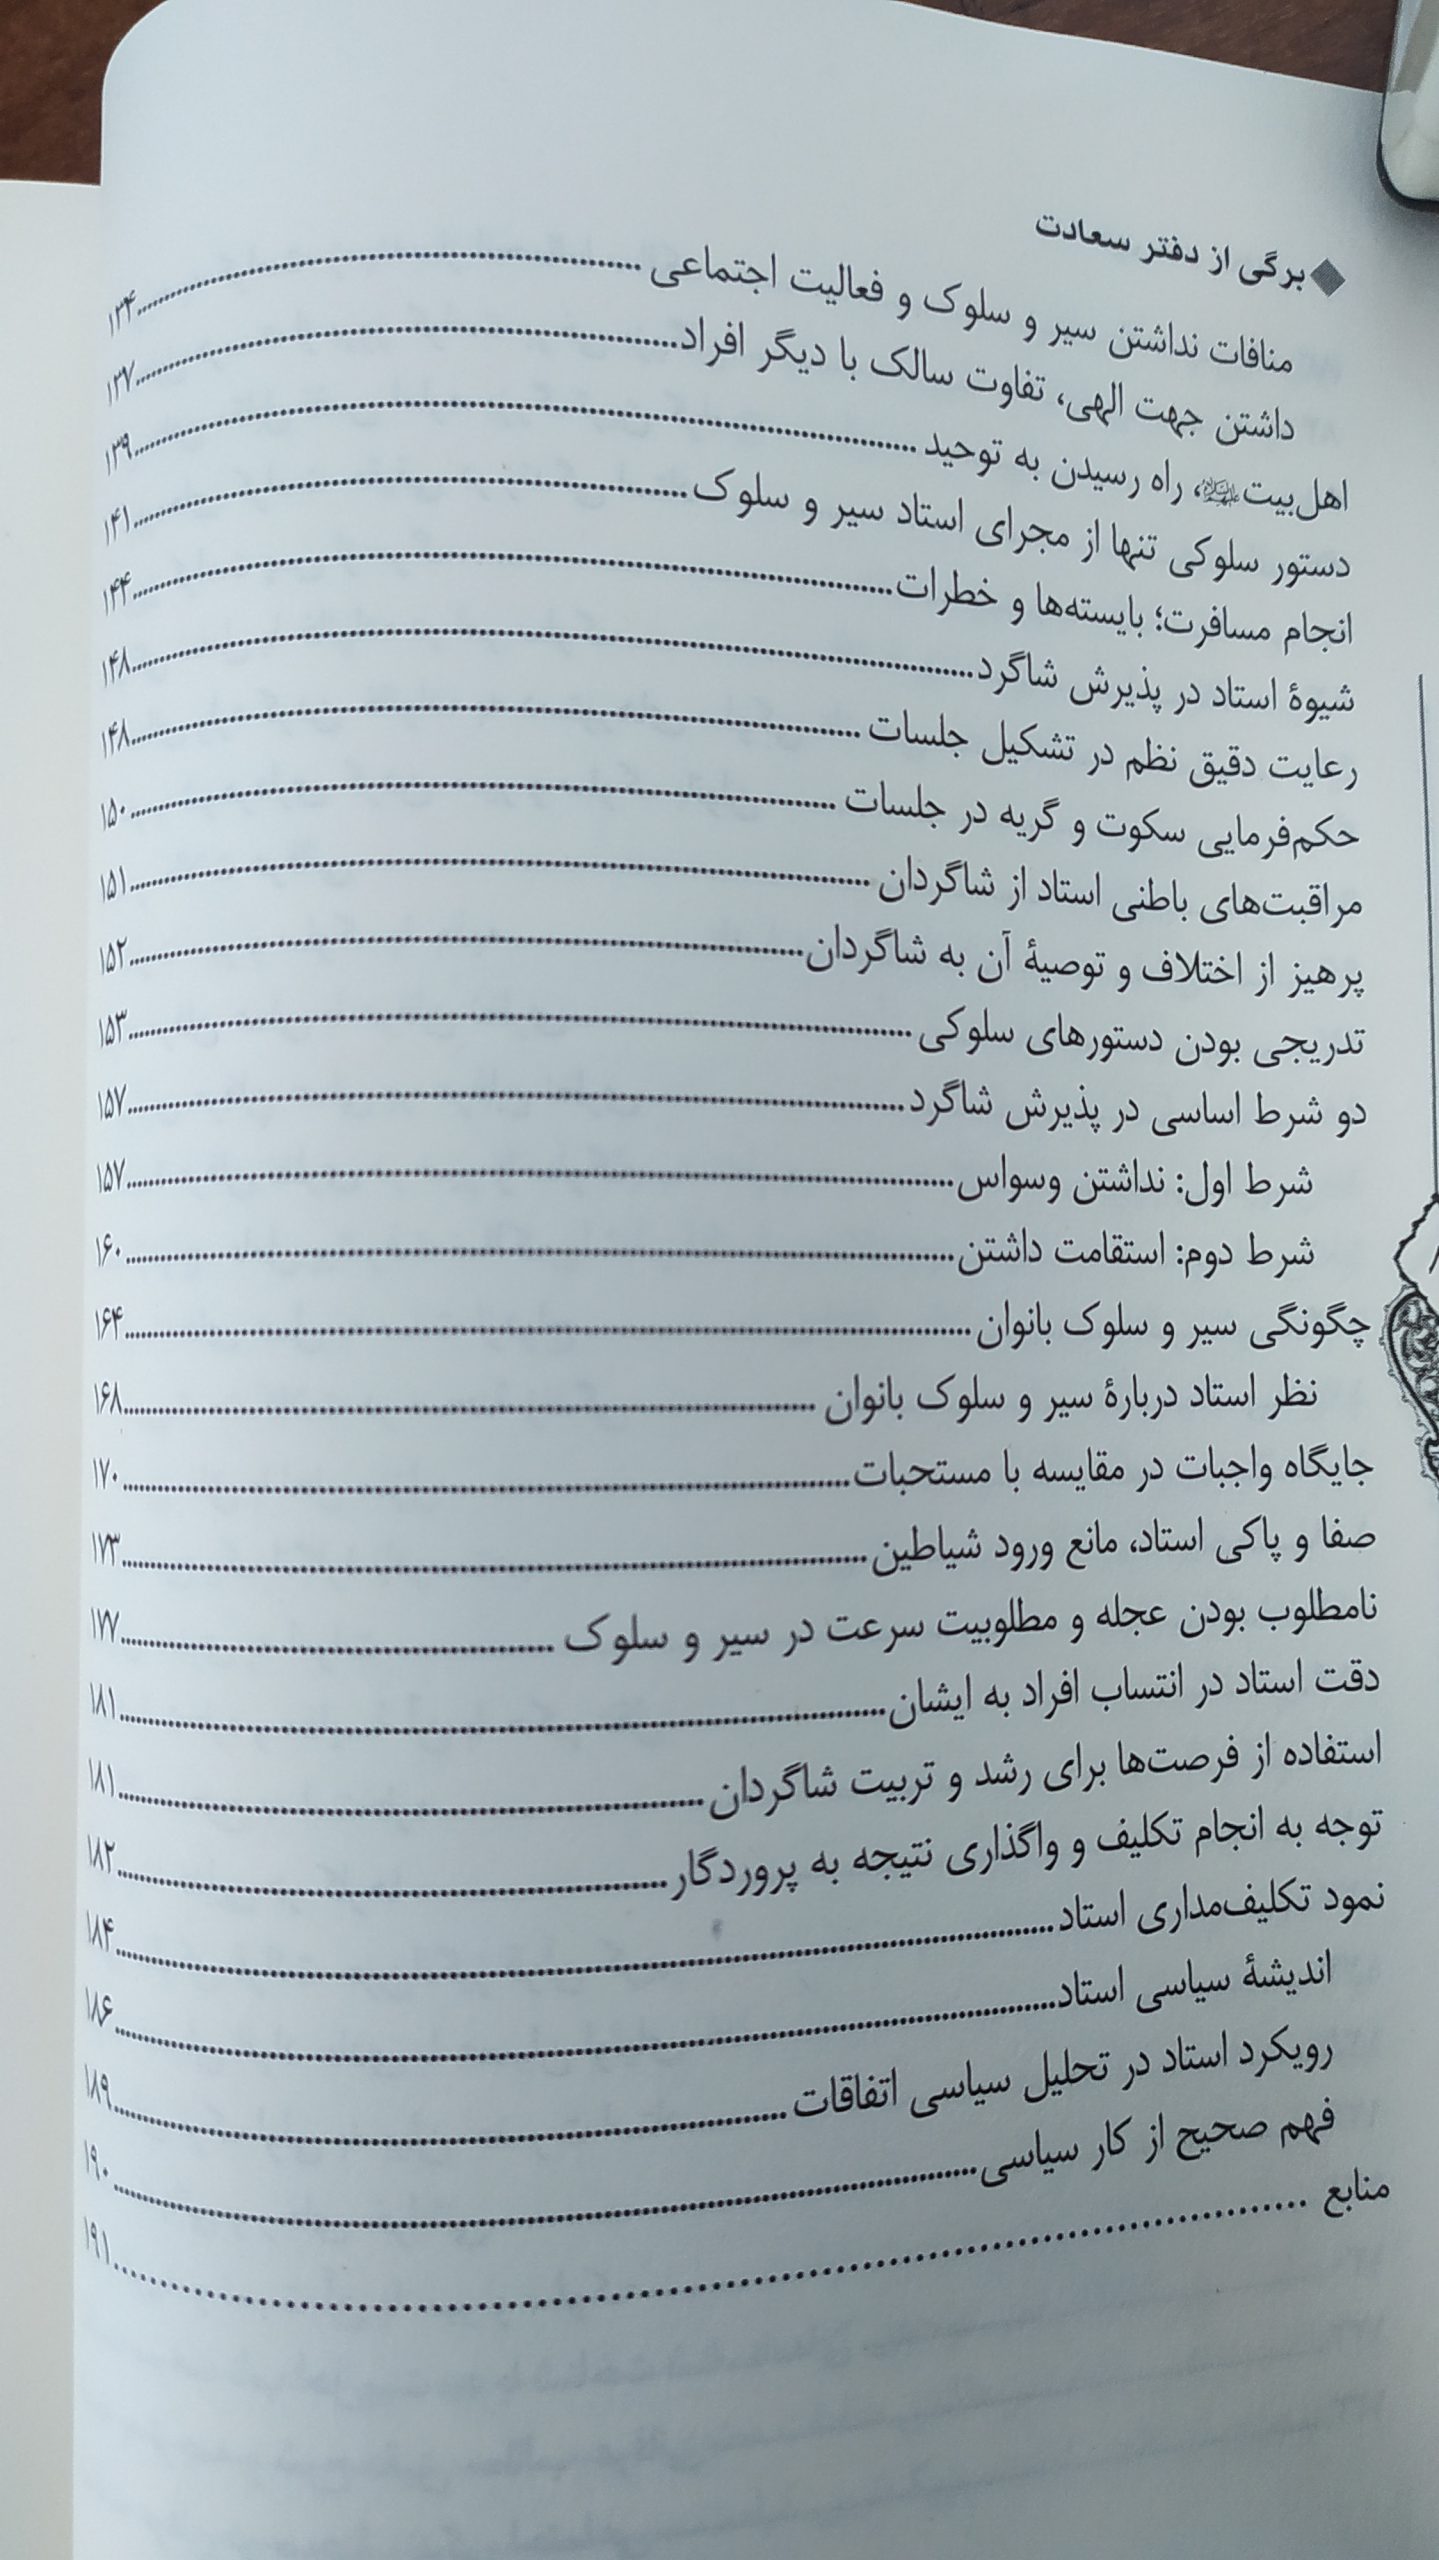 ◆ برگی از دفتر سعادت
منافات نداشتن سیر و سلوک و فعالیت اجتماعی ........ ۱۳۴
داشتن جهت الهی، تفاوت سالک با دیگر افراد ........ ۱۳۷
اهل‌بیت علیهم‌السلام، راه رسیدن به توحید ........ ۱۳۹
دستور سلوکی تنها از مجرای استاد سیر و سلوک ........ ۱۴۱
انجام مسافرت؛ بایسته‌ها و خطرات ........ ۱۴۴
شیوهٔ استاد در پذیرش شاگرد ........ ۱۴۸
رعایت دقیق نظم در تشکیل جلسات ........ ۱۴۸
حکم‌فرمایی سکوت و گریه در جلسات ........ ۱۵۰
مراقبت‌های باطنی استاد از شاگردان ........ ۱۵۱
پرهیز از اختلاف و توصیهٔ آن به شاگردان ........ ۱۵۲
تدریجی بودن دستورهای سلوکی ........ ۱۵۳
دو شرط اساسی در پذیرش شاگرد ........ ۱۵۷
شرط اول: نداشتن وسواس ........ ۱۵۷
شرط دوم: استقامت داشتن ........ ۱۶۰
چگونگی سیر و سلوک بانوان ........ ۱۶۴
نظر استاد دربارهٔ سیر و سلوک بانوان ........ ۱۶۸
جایگاه واجبات در مقایسه با مستحبات ........ ۱۷۰
صفا و پاکی استاد، مانع ورود شیاطین ........ ۱۷۳
نامطلوب بودن عجله و مطلوبیت سرعت در سیر و سلوک ........ ۱۷۷
دقت استاد در انتساب افراد به ایشان ........ ۱۸۱
استفاده از فرصت‌ها برای رشد و تربیت شاگردان ........ ۱۸۱
توجه به انجام تکلیف و واگذاری نتیجه به پروردگار ........ ۱۸۲
نمود تکلیف‌مداری استاد ........ ۱۸۴
اندیشهٔ سیاسی استاد ........ ۱۸۶
رویکرد استاد در تحلیل سیاسی اتفاقات ........ ۱۸۹
فهم صحیح از کار سیاسی ........ ۱۹۰
منابع ........ ۱۹۱